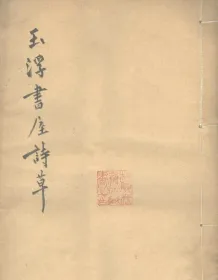 玉浮書屋詩草